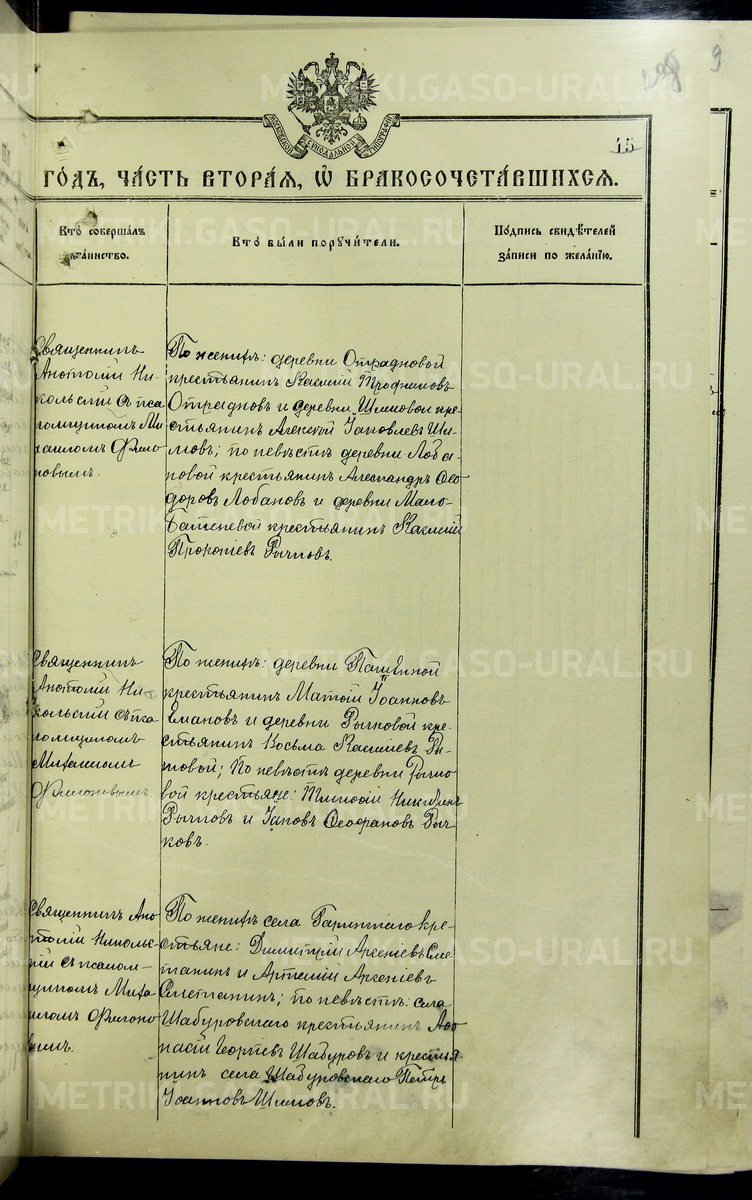 208 9
МОСКОВСКОЙ СѴНОДАЛЬНОЙ ТИПОГРАФІИ
15
ГОДЪ, ЧАСТЬ ВТОРАЯ, Ѡ БРАКОСОЧЕТАВШИХСЯ.
Кто совершалъ
таинство.
Кто были поручители.
Подпись свидѣтелей
записи по желанію.
Священникъ
Анатолій Ни-
кольскій съ пса
ломщикомъ Ми-
хаиломъ Фило-
новымъ.
По женихѣ: деревни Отрадновой
крестьянинъ Кассій Трофимовъ
Отрадновъ и деревни Шиловой кре-
стьянинъ Алексѣй Іаковлевъ Ши-
ловъ; по невѣстѣ деревни Лоба-
новой крестьянинъ Александръ Ѳео-
доровъ Лобановъ и деревни Мало-
Батеневой крестьянинъ Кассій
Прокопіевъ Рычковъ.
Священникъ
Анатолій Ни-
кольскій съ пса
ломщикомъ
Михаиломъ
Филоновымъ
По женихѣ: деревни Пашниной
крестьянинъ Матѳій Іоанновъ
Елмановъ и деревни Рычковой кре-
стьянинъ Косьма Кассіевъ Ры-
ковой; по невѣстѣ деревни Рычко
вой крестьяне: Тимоѳій
Рычковъ и Іаковъ Ѳеофановъ Рыч
ковъ.
Священникъ Ана-
толій Николь-
скій съ псалом-
щикомъ Миха-
иломъ Филоно
вымъ.
По женихѣ села Гаринскаго кре-
стьяне: Димитрій Арсеніевъ Сме-
танинъ и Артемій Арсеніевъ
Сметанинъ; по невѣстѣ: села
Шабуровскаго крестьянинъ Аѳо-
насій Георгіевъ Шабуровъ и крестья-
нинъ села Шабуровскаго Петръ
Іоанновъ Шиловъ.
METRIKI.GASO-URAL.RU